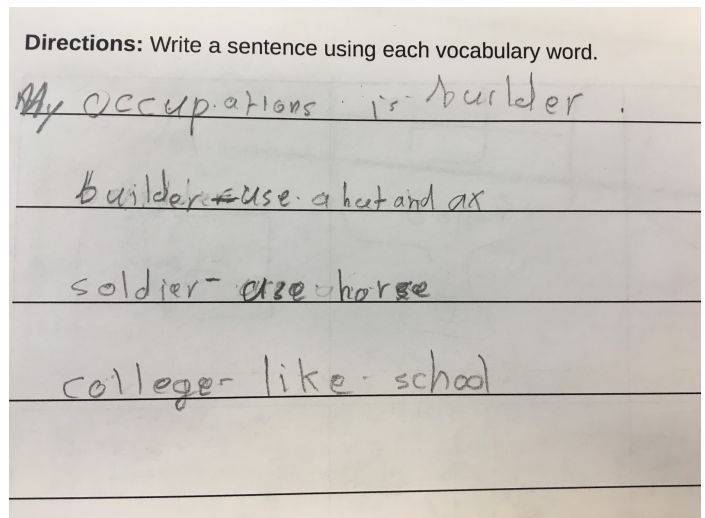 Directions: Write a sentence using each vocabulary word.
My occupations is builder.
builder - use a hat and ax
soldier - use horse
college - like school